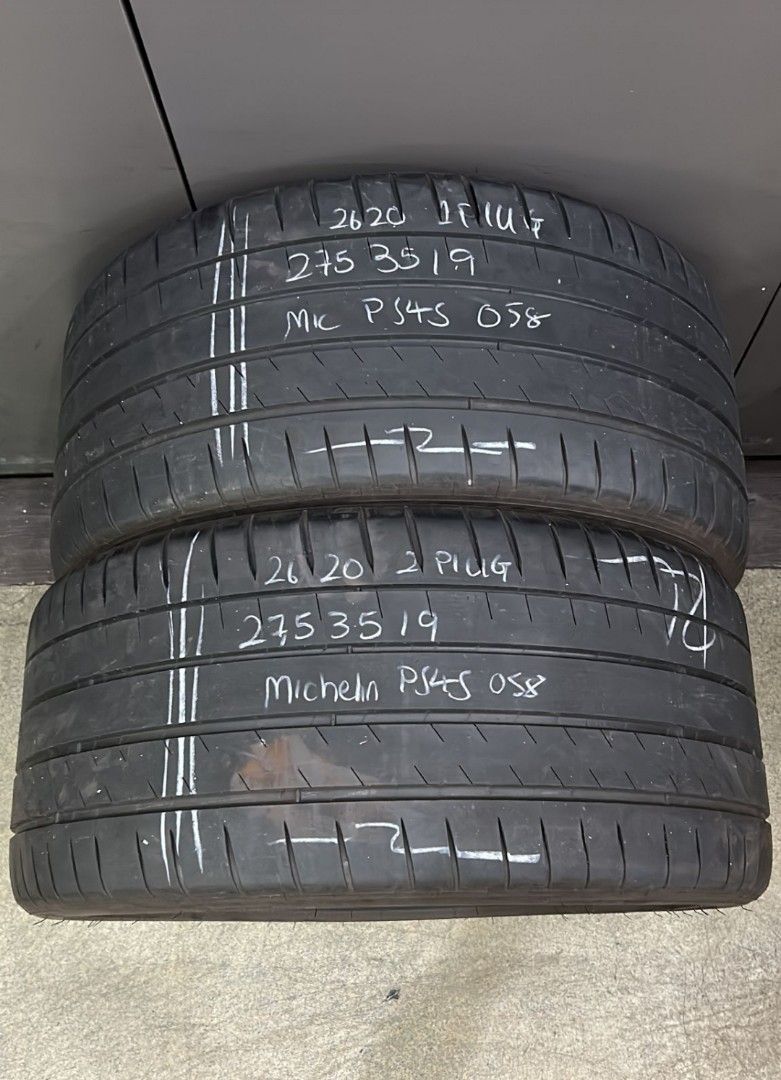 2620 1PlUG
2753519
Mic PS4S 058
2
2620 2 PlUG
2753519
Michelin PS4S 058
2